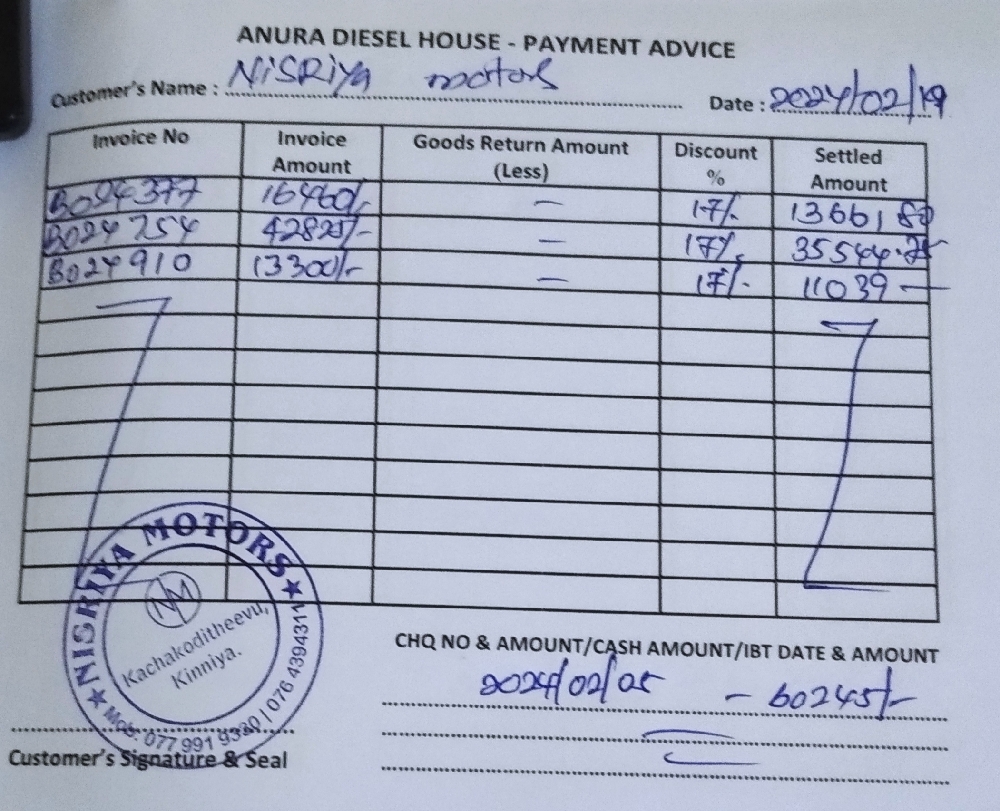 ANURA DIESEL HOUSE - PAYMENT ADVICE
Customer's Name : Nisriya motors Date : 2024/02/19
Invoice No Invoice Amount Goods Return Amount (Less) Discount % Settled Amount
B024377 16460/- — 17% 13661.80
B024754 42825/- — 17% 35544.75
B024910 13300/- — 17% 11039 —
★ NISRIYA MOTORS ★
NM
Kachakoditheevu,
Kinniya.
Mob: 077 991 | 076 4394311
CHQ NO & AMOUNT/CASH AMOUNT/IBT DATE & AMOUNT
2024/02/05 — 60245/-
Customer's Signature & Seal